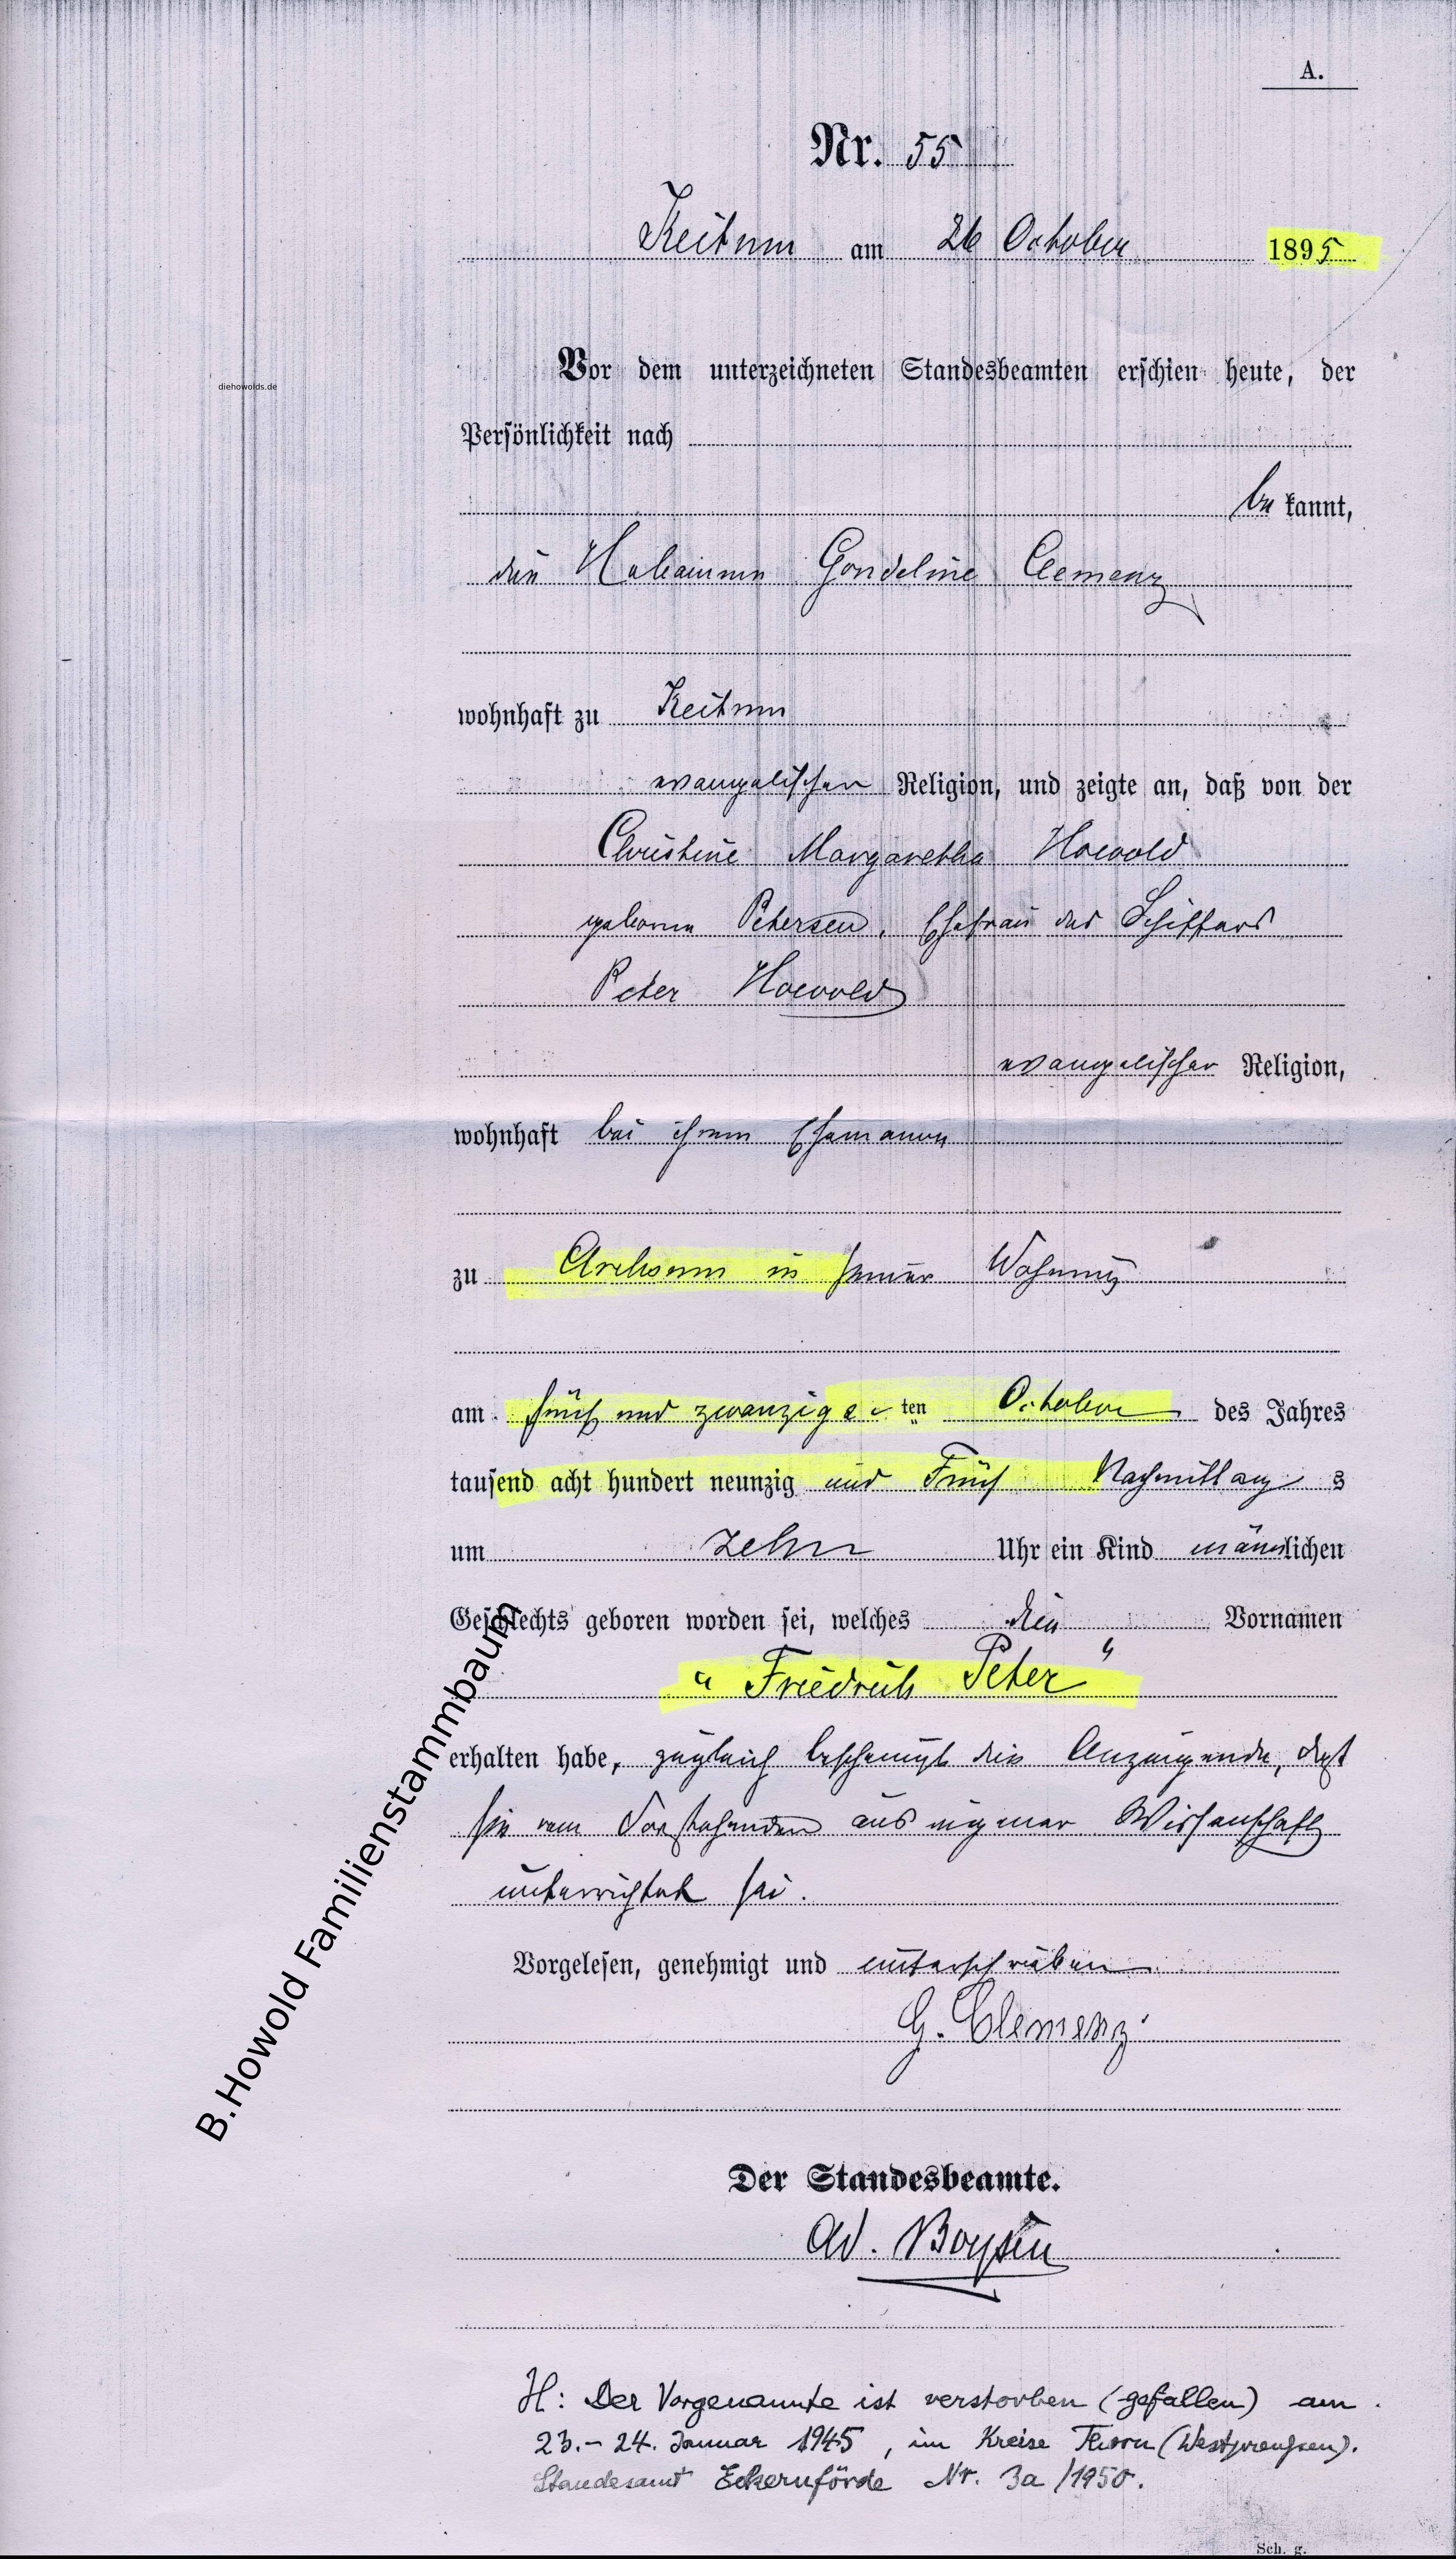 A.
Nr. 55
Keitum am 26 October 1895
Vor dem unterzeichneten Standesbeamten erschien heute, der
diehowolds.de
Persönlichkeit nach
be kannt,
die Hebamme Gondeline Clemenz
wohnhaft zu Keitum
evangelischer Religion, und zeigte an, daß von der
Christine Margaretha Howold
geborne Petersen, Ehefrau des Schiffers
Peter Howold
evangelischer Religion,
wohnhaft bei ihrem Ehemann
zu Archsum in seiner Wohnung
am fünf und zwanzigs ten October des Jahres
tausend acht hundert neunzig und Fünf Nachmittag s
um zehn Uhr ein Kind männlichen
Geschlechts geboren worden sei, welches die Vornamen
"Friedrich Peter"
erhalten habe, zugleich bescheinigt die Anzeigende, daß
sie vom Vorstehenden aus eigener Wissenschaft
unterrichtet sei.
Vorgelesen, genehmigt und unterschrieben
G. Clemenz
B. Howold Familienstammbaum
Der Standesbeamte.
Ad. Boysen
H: Der Vorgenannte ist verstorben (gefallen) am
23.-24. Januar 1945, im Kreise Thorn (Westpreußen).
Standesamt Eckernförde Nr. 3a/1950.
Sch. g.